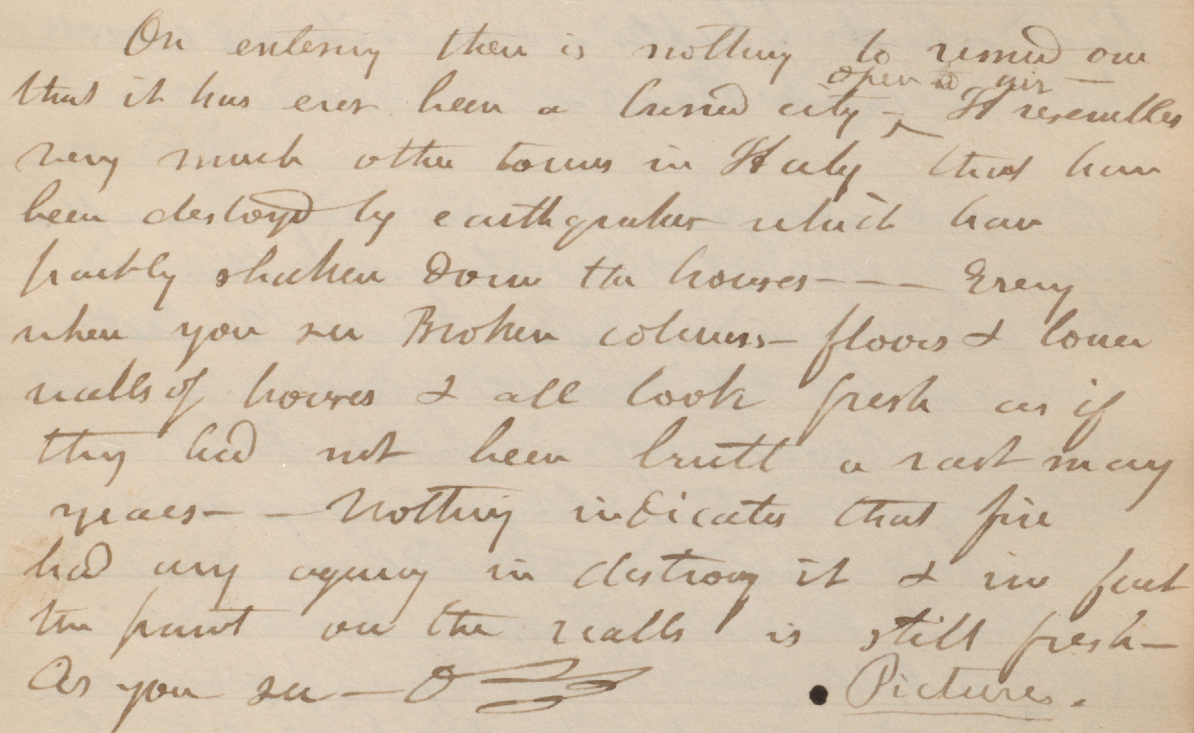 On entering there is nothing to remind one
open to air —
that it has ever been a buried city – It resembles
very much other towns in Italy that have
been destoryd by earthquakes which have
partly shaken down the houses – – – Every
where you see Broken columns – floors & lower
walls of houses & all look fresh as if
they had not been built a vast many
years – – Nothing indicates that fire
had any agency in destroy it & in fact
the paint on the walls is still fresh –
As you see –
Pictures.